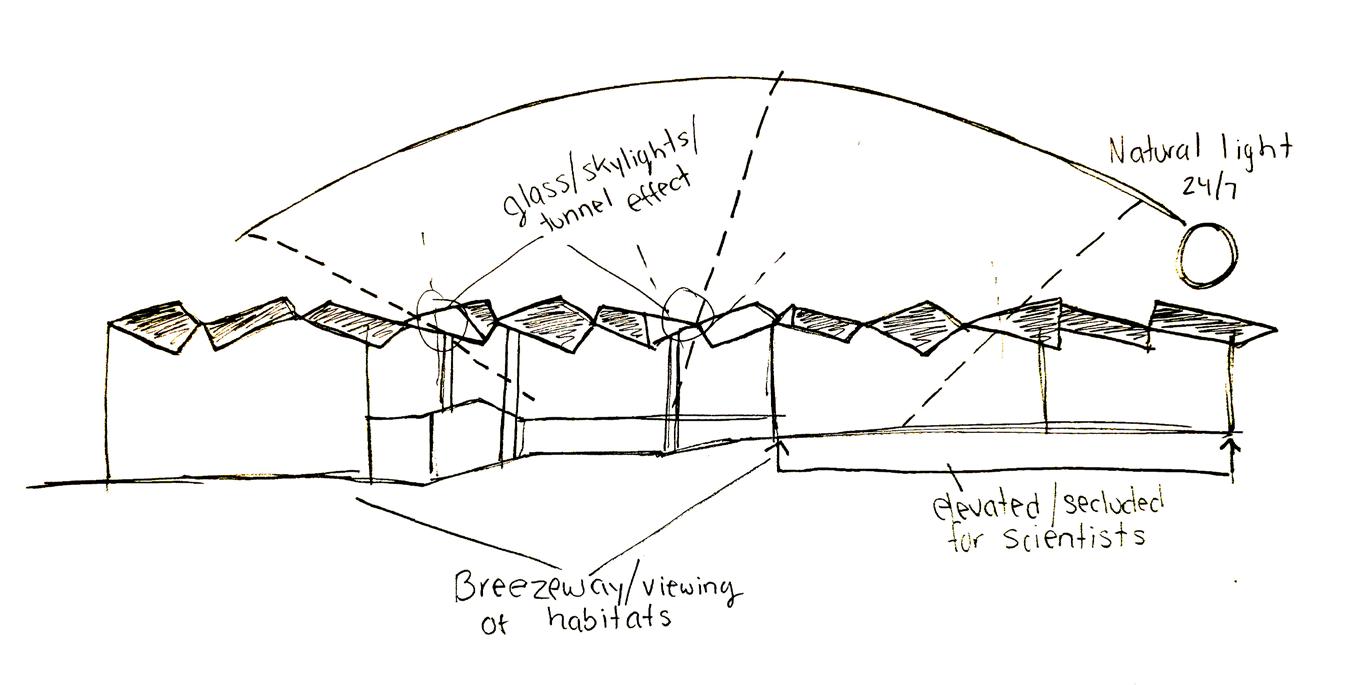 glass/skylights/
tunnel effect
Natural light
24/7
elevated/secluded
for scientists
Breezeway/viewing
of habitats